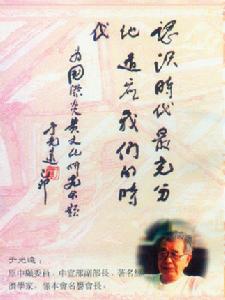 認識時代最充分
地適應我們的時
代
為國際炎黃文化研究會題
于光遠
于光遠：
原中顧委員、中宣部副部長、著名經
濟學家，本會名譽會長。